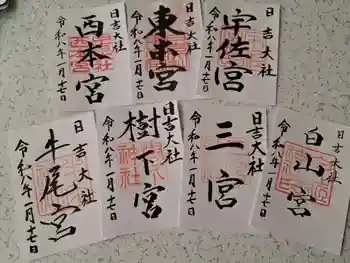 日吉大社
西本宮
令和八年一月十七日
日吉大社
東本宮
令和八年一月十七日
日吉大社
宇佐宮
令和八年一月十七日
日吉大社
牛尾宮
令和八年一月十七日
日吉大社
樹下宮
令和八年一月十七日
日吉大社
三宮
令和八年一月十七日
日吉大社
白山宮
令和八年一月十七日